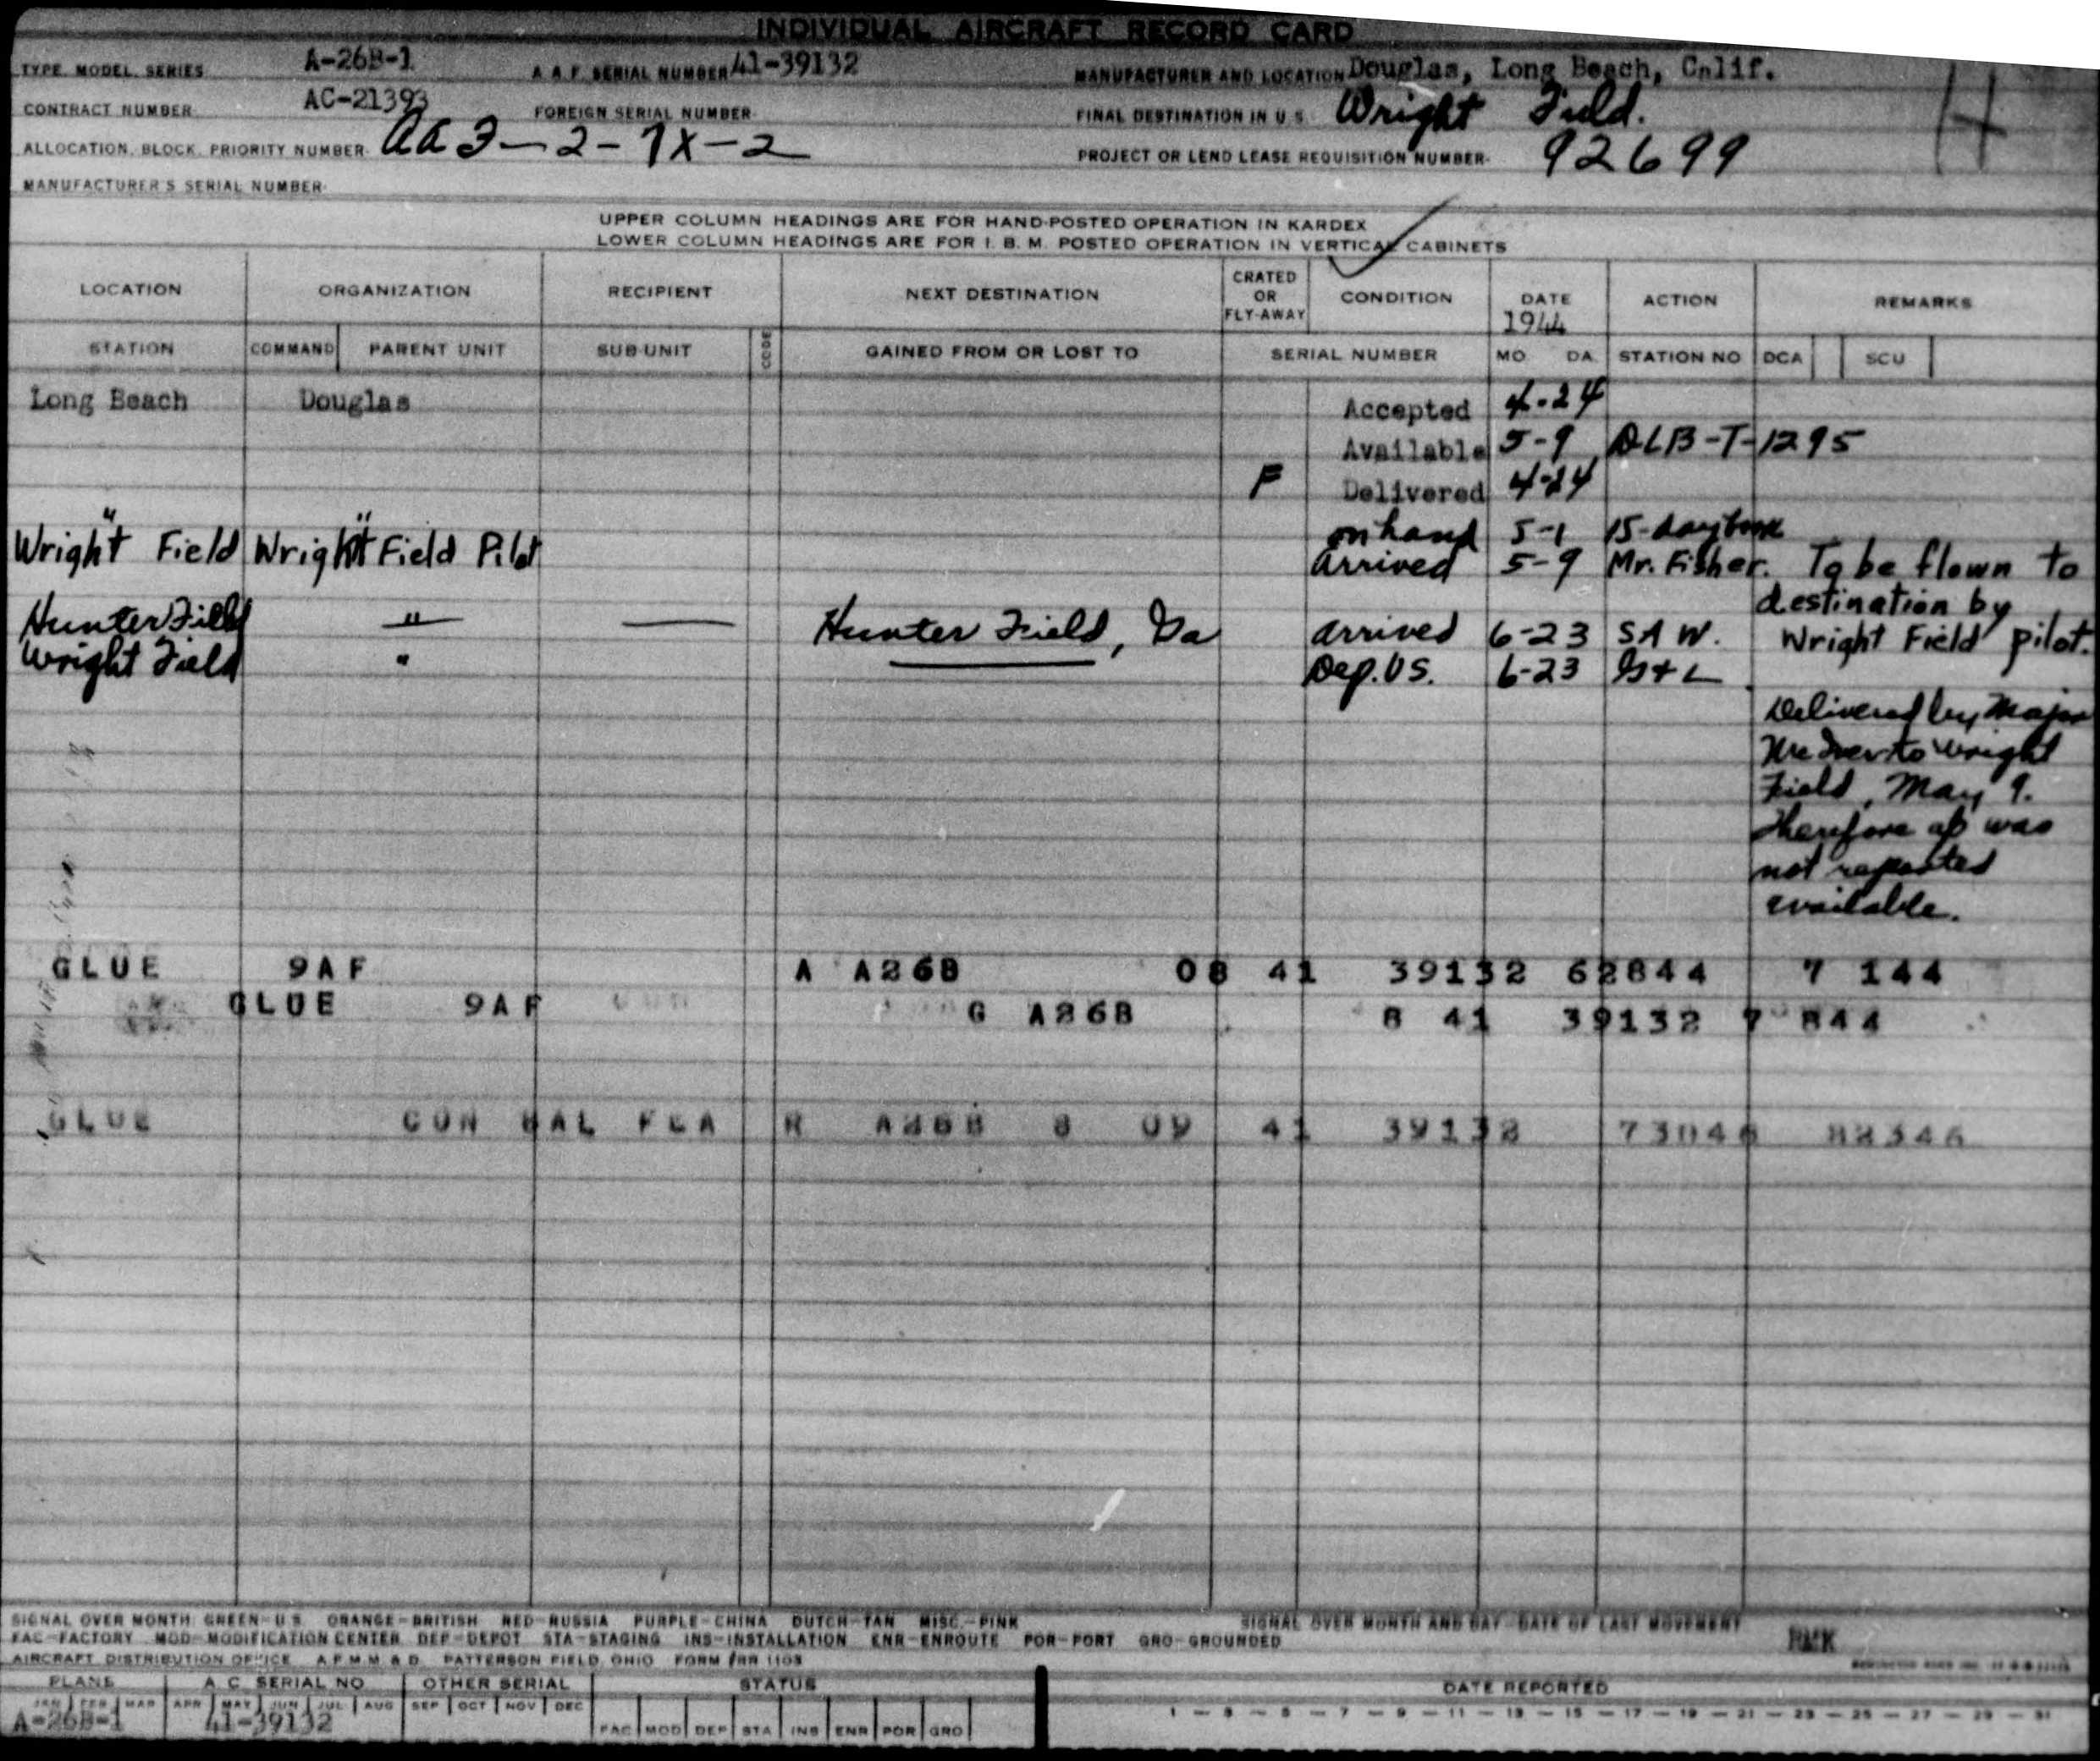 INDIVIDUAL AIRCRAFT RECORD CARD
TYPE, MODEL, SERIES A-26B-1 A.A.F. SERIAL NUMBER 41-39132 MANUFACTURER AND LOCATION Douglas, Long Beach, Calif.
CONTRACT NUMBER AC-21393 FOREIGN SERIAL NUMBER FINAL DESTINATION IN U S Wright Field.
ALLOCATION, BLOCK, PRIORITY NUMBER aa3-2-7X-2 PROJECT OR LEND LEASE REQUISITION NUMBER 92699
MANUFACTURER'S SERIAL NUMBER
UPPER COLUMN HEADINGS ARE FOR HAND-POSTED OPERATION IN KARDEX
LOWER COLUMN HEADINGS ARE FOR I. B. M. POSTED OPERATION IN VERTICAL CABINETS
LOCATION ORGANIZATION RECIPIENT NEXT DESTINATION CRATED OR FLY-AWAY CONDITION DATE 1944 ACTION REMARKS
STATION COMMAND PARENT UNIT SUB-UNIT CODE GAINED FROM OR LOST TO SERIAL NUMBER MO. DA. STATION NO DCA SCU
Long Beach Douglas Accepted 4-24
Available 5-9 DLB-T-1295
F Delivered 4-24
" " on hand 5-1
Wright Field Wright Field Pilot Arrived 5-9 Mr. Fisher. To be flown to
destination by
Hunter Field " Hunter Field, Ga Arrived 6-23 SAW. Wright Field pilot.
Wright Field " Dep. US. 6-23
Delivered by Major
to Wright
Field, May 9.
Therefore ap was
not reported
available.
GLUE 9AF A A26B 08 41 39132 62844 7 144
GLUE 9AF G A26B 8 41 39132 7 844
GLUE CON SAL FEA R A26B 8 09 41 39132 73046 82346
SIGNAL OVER MONTH: GREEN-U S ORANGE-BRITISH RED-RUSSIA PURPLE-CHINA DUTCH-TAN MISC.-PINK SIGNAL OVER MONTH AND DAY-DATE OF LAST MOVEMENT
FAC-FACTORY MOD-MODIFICATION CENTER DEP-DEPOT STA-STAGING INS-INSTALLATION ENR-ENROUTE POR-PORT GRO-GROUNDED
AIRCRAFT DISTRIBUTION OFFICE A.F.M.M.&D. PATTERSON FIELD, OHIO
PLANE A C SERIAL NO OTHER SERIAL STATUS DATE REPORTED
JAN FEB MAR APR MAY JUN JUL AUG SEP OCT NOV DEC
A-26B-1 41-39132 FAC MOD DEP STA INS ENR POR GRO 1 - 3 - 5 - 7 - 9 - 11 - 13 - 15 - 17 - 19 - 21 - 23 - 25 - 27 - 29 - 31